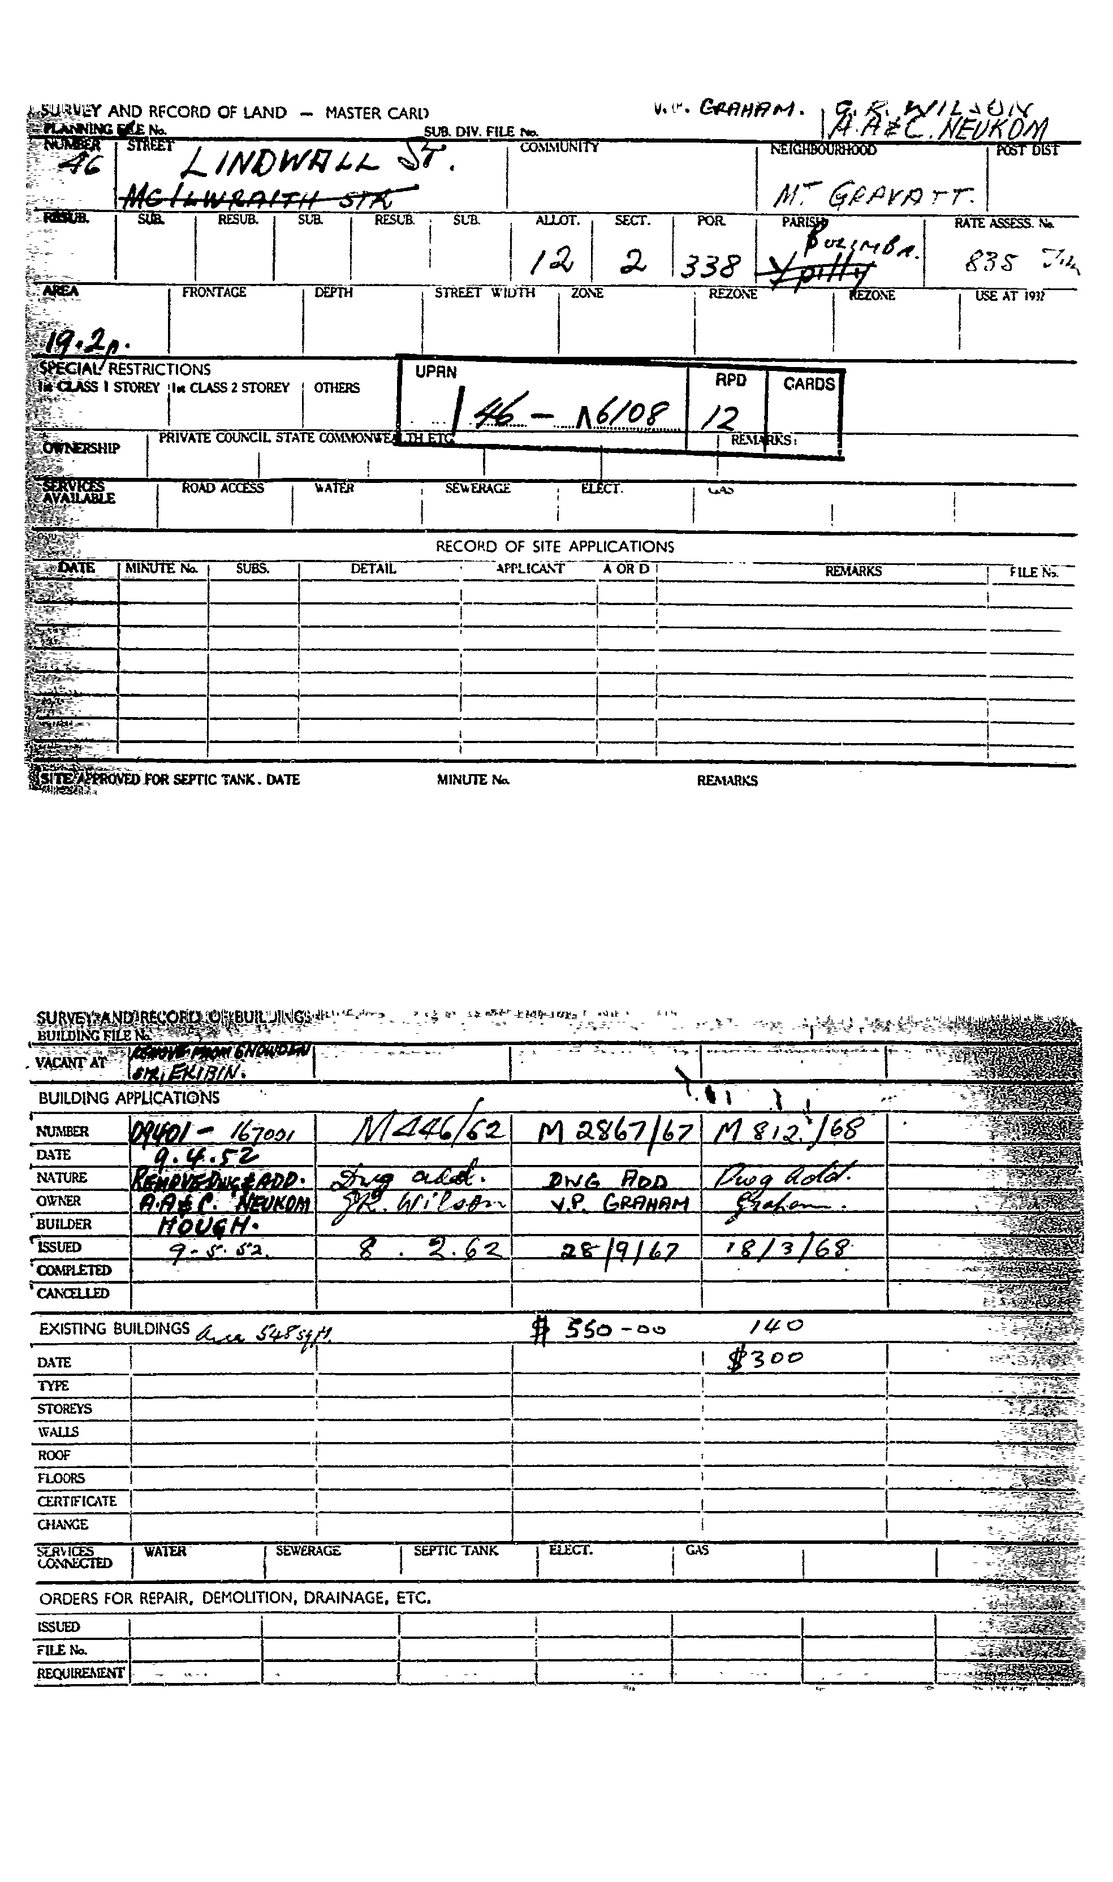 SURVEY AND RECORD OF LAND — MASTER CARD
V.P. GRAHAM. G. R. WILSON
A. A & C. NEUKOM
PLANNING FILE No. SUB. DIV. FILE No.
NUMBER STREET COMMUNITY NEIGHBOURHOOD POST DIST
46 LINDWALL ST.
MCILWRAITH STR MT GRAVATT.
RESUB. SUB. RESUB. SUB. RESUB. SUB. ALLOT. SECT. POR. PARISH RATE ASSESS. No.
12 2 338 BULIMBA. 835
Ypilly
AREA FRONTAGE DEPTH STREET WIDTH ZONE REZONE REZONE USE AT 193?
19.2p.
SPECIAL RESTRICTIONS
1st CLASS 1 STOREY 1st CLASS 2 STOREY OTHERS
UPRN RPD CARDS
46 — 12
OWNERSHIP PRIVATE COUNCIL STATE COMMONWEALTH ETC. REMARKS:
SERVICES AVAILABLE ROAD ACCESS WATER SEWERAGE ELECT. GAS
RECORD OF SITE APPLICATIONS
DATE MINUTE No. SUBS. DETAIL APPLICANT A OR D REMARKS FILE No.
SITE APPROVED FOR SEPTIC TANK. DATE MINUTE No. REMARKS
SURVEY AND RECORD OF BUILDINGS
BUILDING FILE No.
VACANT AT REMOVE FROM SNOWDEN
STR. EKIBIN.
BUILDING APPLICATIONS
NUMBER 09401 - 167001 M 446/62 M 2867/67 M 812/68
DATE 9.4.52
NATURE REMOVE DWG & ADD. Dwg add. DWG ADD Dwg add.
OWNER A.A & C. NEUKOM G.R. Wilson V.P. GRAHAM Graham.
BUILDER HOUGH.
ISSUED 9-5-52. 8.2.62 28/9/67 18/3/68
COMPLETED
CANCELLED
EXISTING BUILDINGS Area 548 sq ft. $ 550-00 140
DATE $300
TYPE
STOREYS
WALLS
ROOF
FLOORS
CERTIFICATE
CHANGE
SERVICES CONNECTED WATER SEWERAGE SEPTIC TANK ELECT. GAS
ORDERS FOR REPAIR, DEMOLITION, DRAINAGE, ETC.
ISSUED
FILE No.
REQUIREMENT